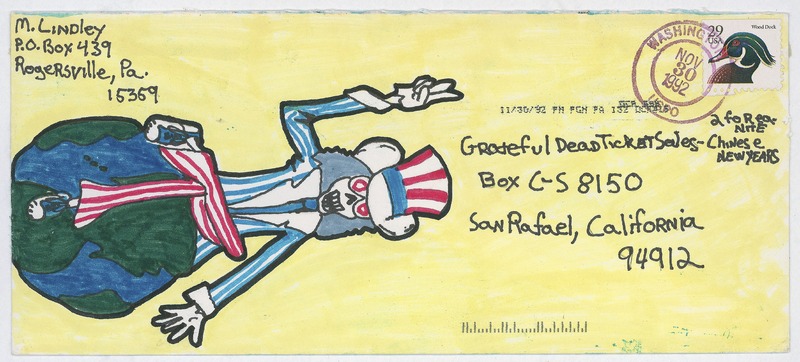 M. Lindley
P.O. Box 439
Rogersville, Pa.
15359
29
USA
Wood Duck
WASHINGT
NOV
30
1992
11/30/92 PM PGH PA 152
2 foR ea.
NITE
CHINESE
NEW YEARS
Grateful Dead Ticket Sales-
Box C-S 8150
San Rafael, California
94912